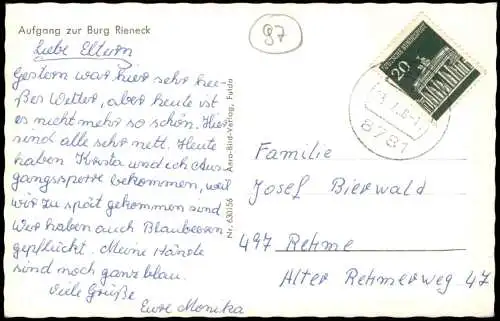 Aufgang zur Burg Rieneck
87
Liebe Eltern
Gestern war hier sehr hei-
ßes Wetter, aber heute ist
es nicht mehr so schön. Hier
sind alle sehr nett. Heute
haben Krista und ich Aus-
gangssperre bekommen, weil
wir zu spät gekommen sind
Wir haben auch Blaubeeren
gepflückt. Meine Hände
sind noch ganz blau.
Viele Grüße
Eure Monika
Nr. 630156 Anro-Bild-Verlag, Fulda
DEUTSCHE BUNDESPOST
20
8781
Familie
Josef Bierwald
497 Rehme
Alter Rehmerweg 47